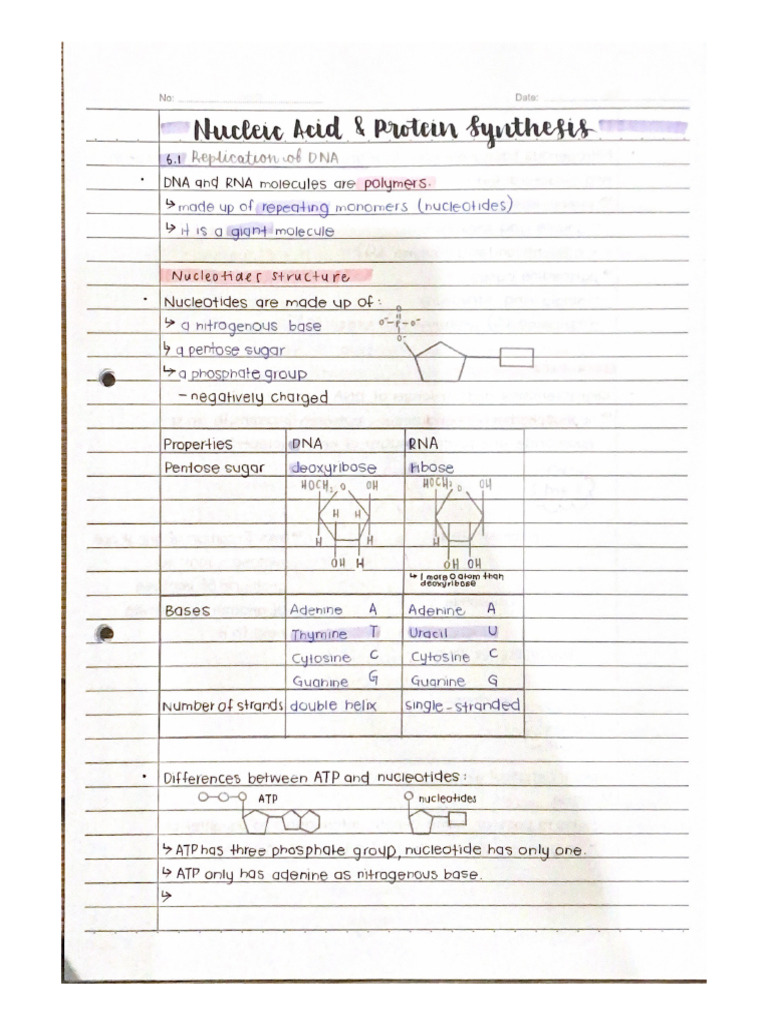 No:
Date:
Nucleic Acid & Protein Synthesis
6.1 Replication of DNA
• DNA and RNA molecules are polymers.
↳ made up of repeating monomers (nucleotides)
↳ it is a giant molecule
Nucleotides structure
• Nucleotides are made up of:
↳ a nitrogenous base
↳ a pentose sugar
↳ a phosphate group
- negatively charged
O
O⁻-P-O⁻
O⁻
Properties DNA RNA
Pentose sugar deoxyribose ribose
HOCH₂ O OH HOCH₂ O OH
H H
H H
OH H OH OH
↳ 1 more O atom than
deoxyribose
Bases Adenine A Adenine A
Thymine T Uracil U
Cytosine C Cytosine C
Guanine G Guanine G
Number of strands double helix single-stranded
• Differences between ATP and nucleotides:
ATP nucleotides
↳ ATP has three phosphate group, nucleotide has only one.
↳ ATP only has adenine as nitrogenous base.
↳